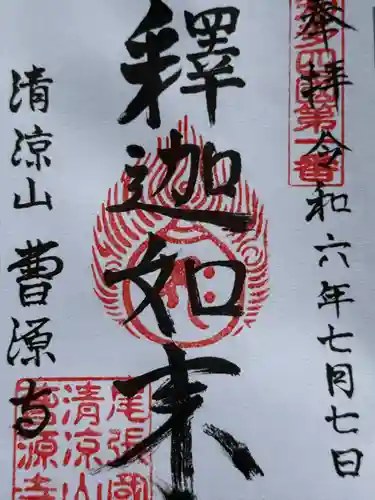 奉拝
令和六年七月七日
釋迦如来
清凉山
曹源寺
第一番
尾張國
清凉山
曹源寺